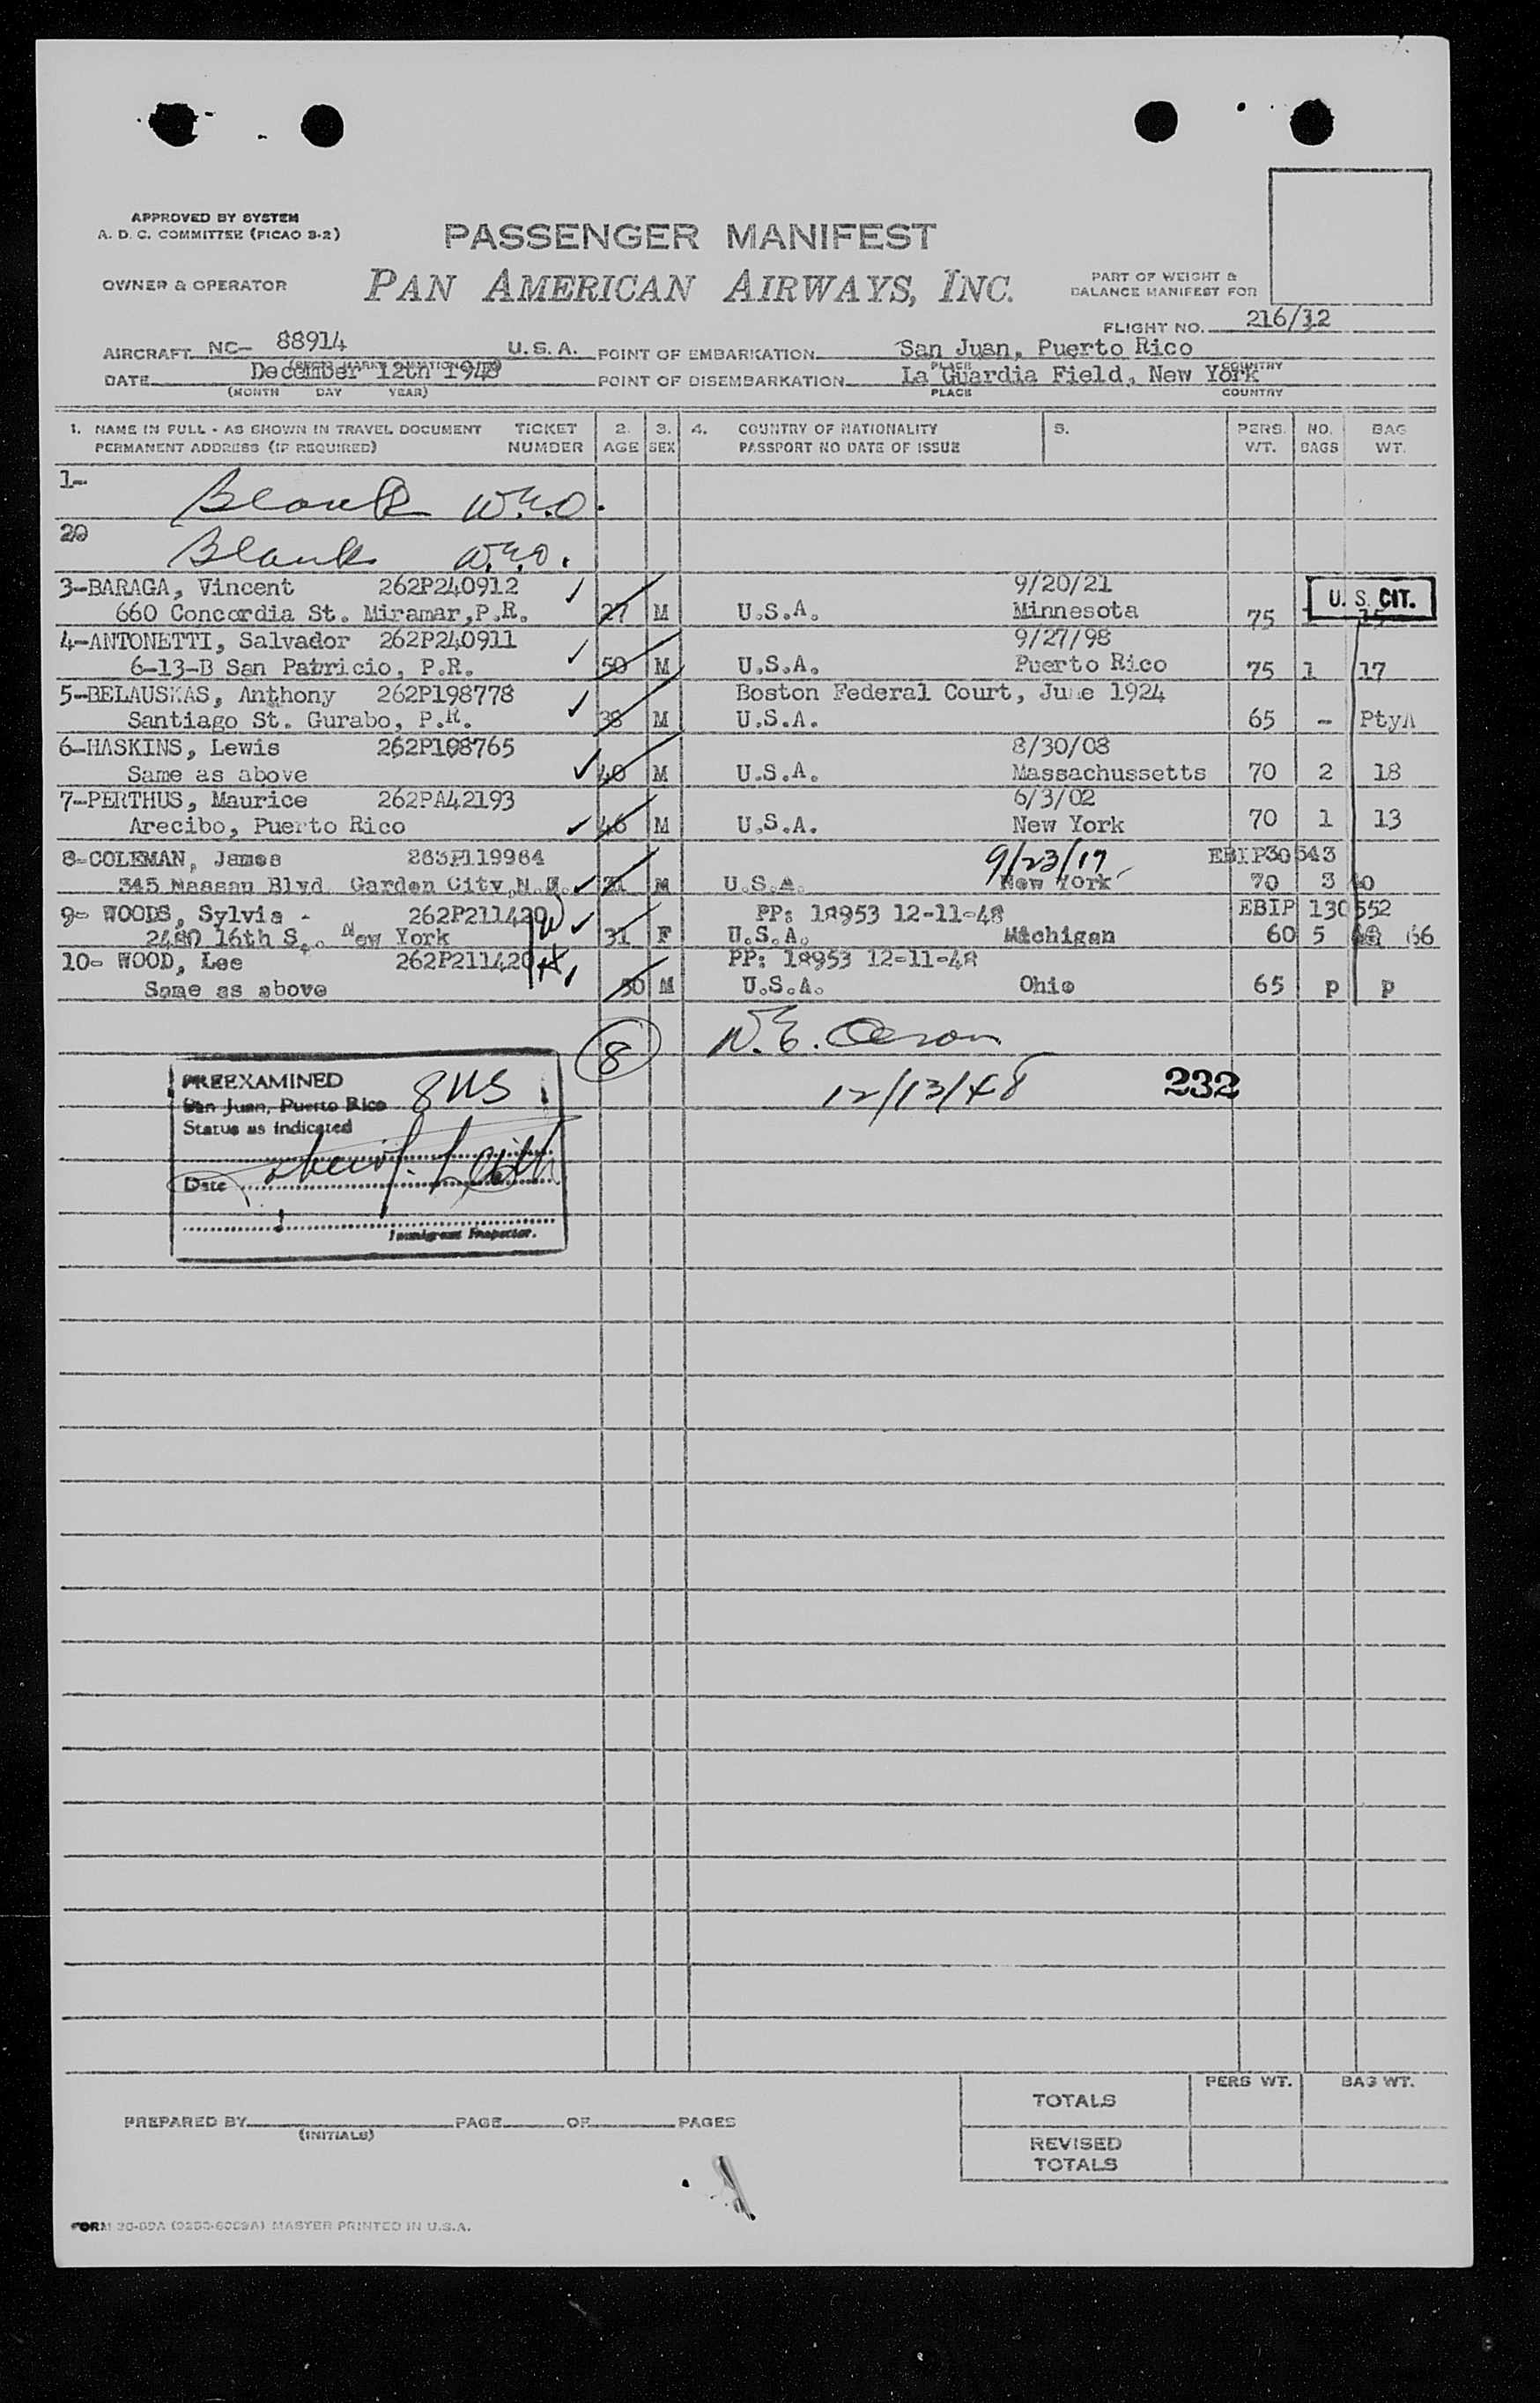 APPROVED BY SYSTEM
A. D. C. COMMITTEE (PICAO 3-2)
PASSENGER MANIFEST
OWNER & OPERATOR
PAN AMERICAN AIRWAYS, INC.
PART OF WEIGHT &
BALANCE MANIFEST FOR
FLIGHT NO. 216/12
AIRCRAFT NC- 88914 U. S. A. POINT OF EMBARKATION San Juan, Puerto Rico
DATE December 12th 1948 POINT OF DISEMBARKATION La Guardia Field, New York
(MONTH DAY YEAR) PLACE COUNTRY
1. NAME IN FULL - AS SHOWN IN TRAVEL DOCUMENT TICKET 2. 3. 4. COUNTRY OF NATIONALITY 5. PERS. NO. BAG
PERMANENT ADDRESS (IF REQUIRED) NUMBER AGE SEX PASSPORT NO DATE OF ISSUE WT. BAGS WT.
1-
Blank W.E.O.
20
Blank W.E.O.
3-BARAGA, Vincent 262P240912 9/20/21
660 Concordia St. Miramar,P.R. 27 M U.S.A. Minnesota 75 15
U. S. CIT.
4-ANTONETTI, Salvador 262P240911 9/27/98
6-13-B San Patricio, P.R. 50 M U.S.A. Puerto Rico 75 1 17
5-BELAUSKAS, Anthony 262P198778 Boston Federal Court, June 1924
Santiago St. Gurabo, P.R. 38 M U.S.A. 65 - PtyA
6-HASKINS, Lewis 262P198765 8/30/08
Same as above 40 M U.S.A. Massachussetts 70 2 18
7-PERTHUS, Maurice 262PA42193 6/3/02
Arecibo, Puerto Rico 46 M U.S.A. New York 70 1 13
8-COLEMAN, James 263P119964 9/23/17 EBIP30543
345 Nassau Blvd. Garden City,N.Y. 31 M U.S.A. New York 70 3 40
9- WOODS, Sylvia - 262P211420 PP: 18953 12-11-48 EBIP 130552
2480 16th St. New York 31 F U.S.A. Michigan 60 5 66
10- WOOD, Lee 262P211420 PP: 18953 12-11-48
Same as above 50 M U.S.A. Ohio 65 p p
8
12/13/48
232
PREEXAMINED
San Juan, Puerto Rico
8 US
Status as indicated
Date
Immigrant Inspector.
TOTALS PERS WT. BAG WT.
PREPARED BY PAGE OF PAGES
(INITIALS)
REVISED
TOTALS
MASTER PRINTED IN U.S.A.